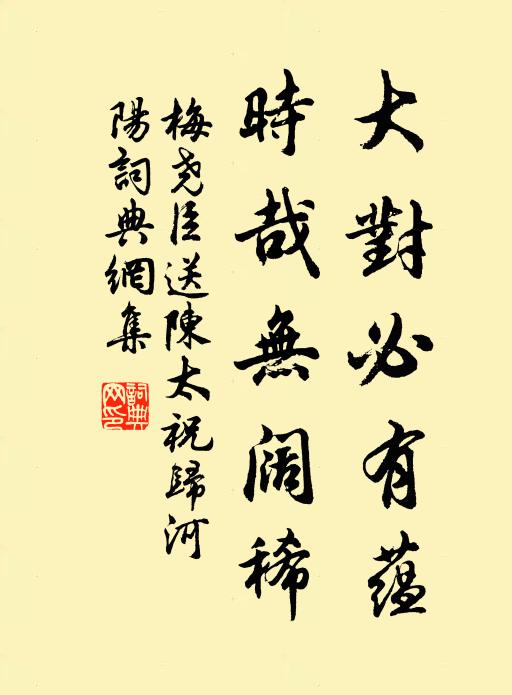 大對必有蘊
時哉無闊稀
梅尧臣送陳太祝歸河
陽詞典網集
詞典
网印